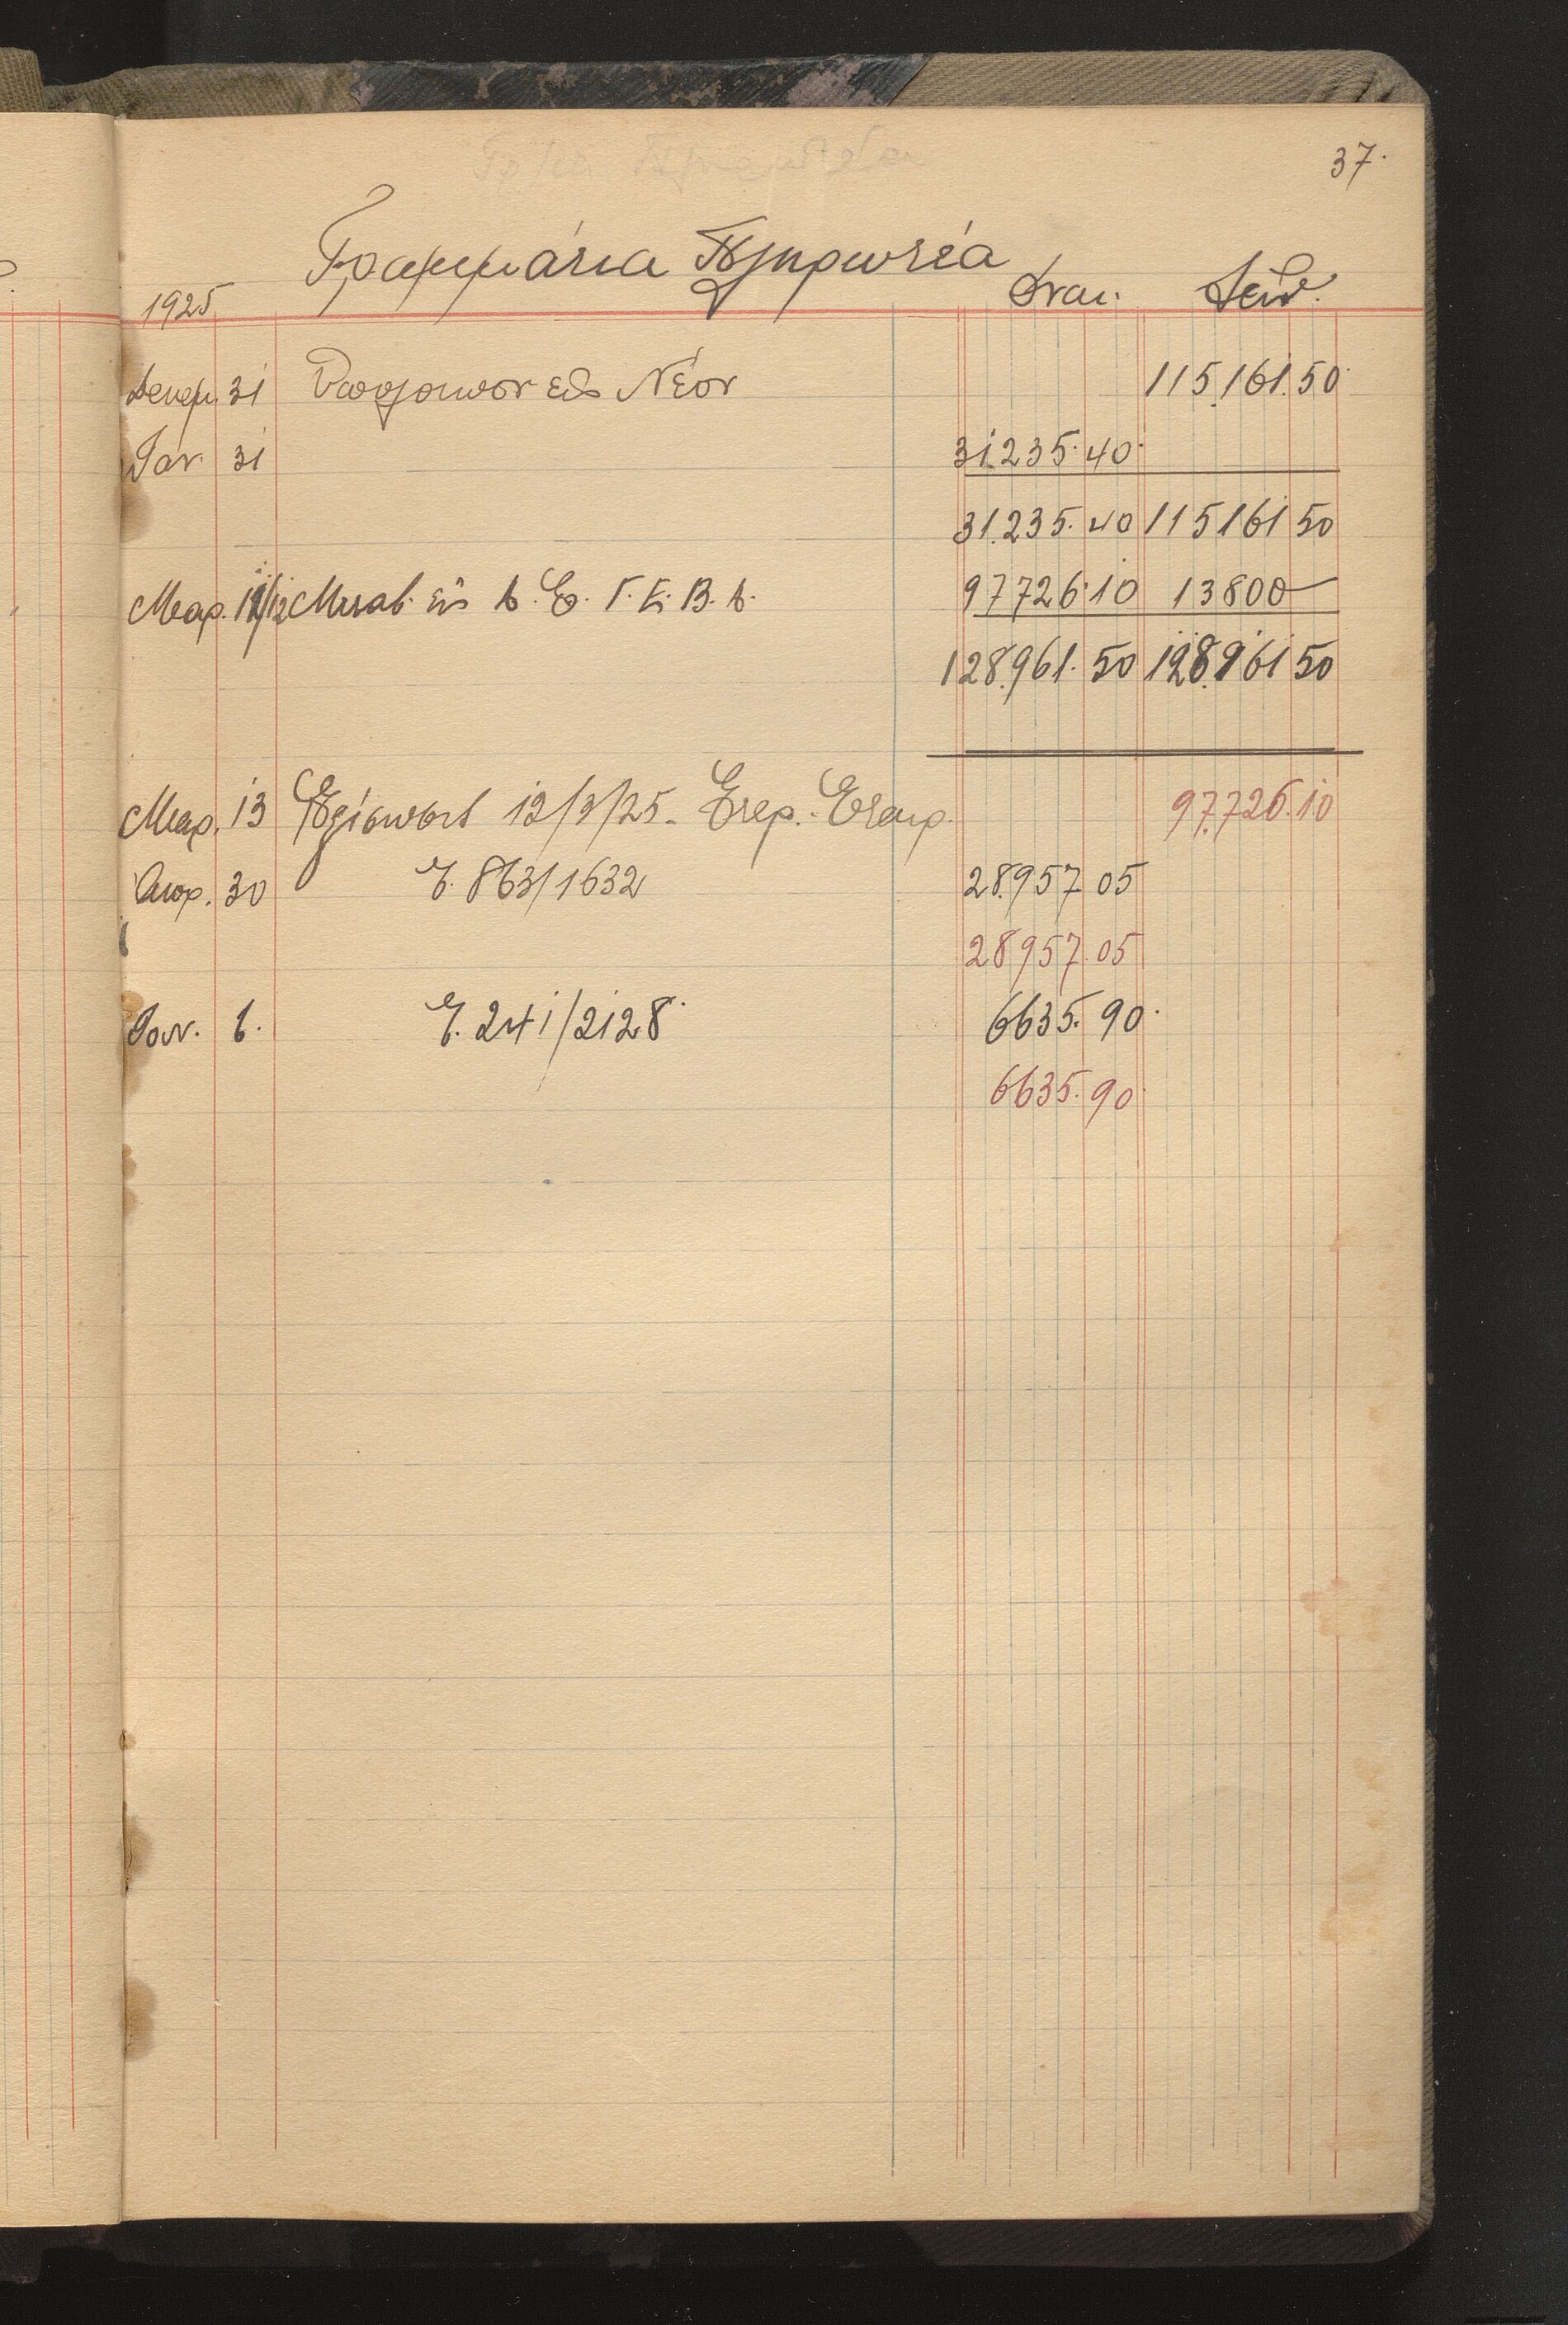 37.
Γραμμάτια Πληρωτέα
1925 Δναι. Λειν.
Δεκεμ. 31 Υπόλοιπον εις Νέον 115.161.50
Ιαν. 31 31.235.40
31.235.40 115161 50
Μαρ. 12/12 Μεταβ. εις Δ. Ε. Γ. Γ. Β. Δ. 97726.10 13800 —
128.961.50 128.961 50
Μαρ. 13 Εξίσωσις 12/3/25. Ετερ. Εταιρ. 97.726.10
Απρ. 30 Γ. 863/1632 28.957 05
28957.05
Ιουν. 6. Γ. 241/2128 6635.90
6635.90